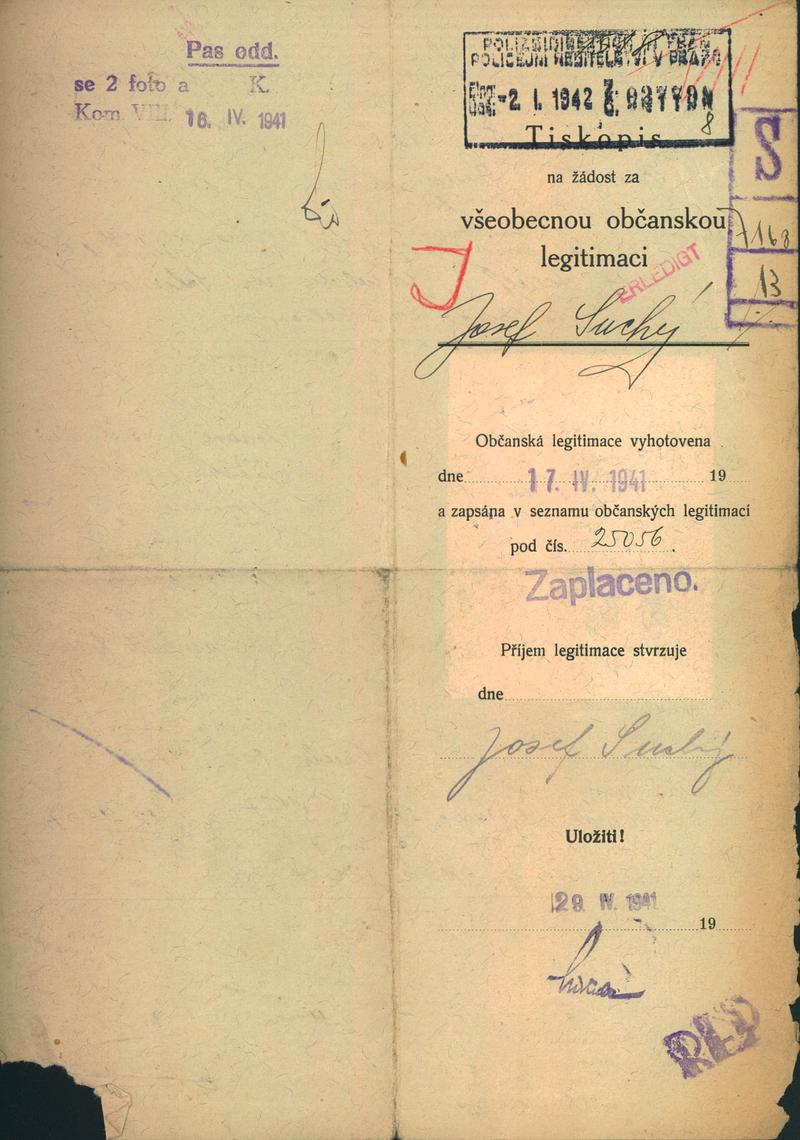 Pas odd.
se 2 foto a K.
Kom VIII. 16. IV. 1941
POLICEJNÍ ŘEDITELSTVÍ V PRAZE
-2. I. 1942
8
Tiskopis
na žádost za
všeobecnou občanskou
legitimaci
S
7168
13
J
ERLEDIGT
Josef Suchý
Občanská legitimace vyhotovena
dne 17. IV. 1941 19
a zapsána v seznamu občanských legitimací
pod čís. 25056.
Zaplaceno.
Příjem legitimace stvrzuje
dne
Josef Suchý
Uložiti!
29. IV. 1941
19